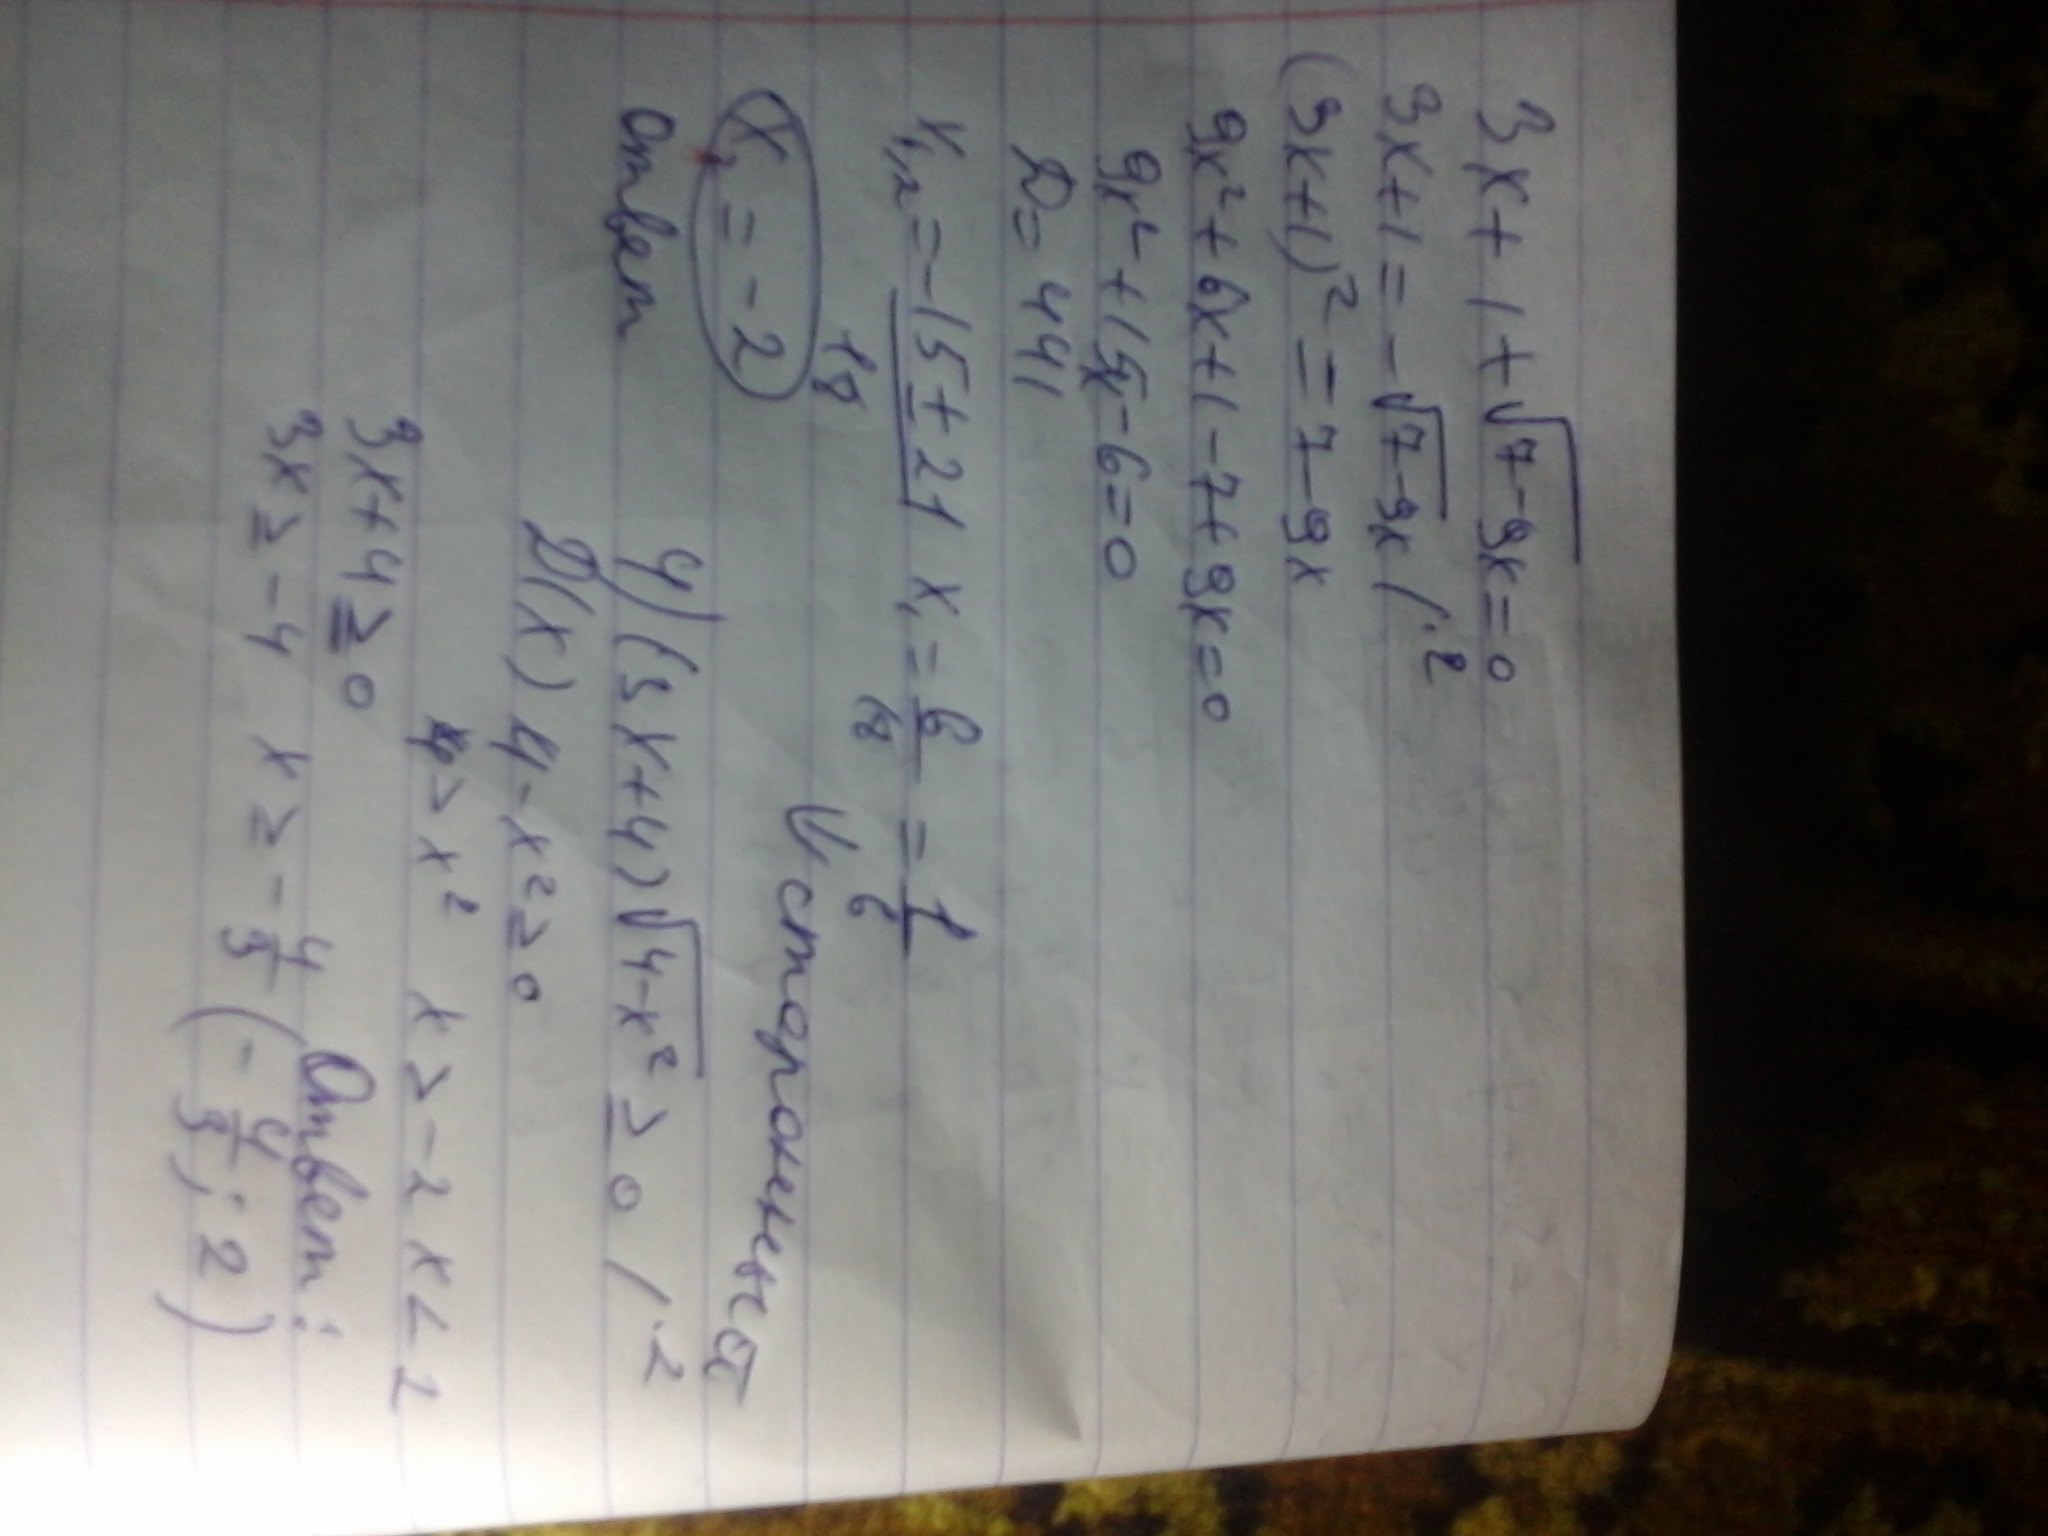 3x+1+√7-9x=0
3x+1=-√7-9x /·2
(3x+1)²=7-9x
9x²+6x+1-7+9x=0
9x²+15x-6=0
D=441
x₁,₂=-15±21/18 x₁=6/18=1/6
x₂=-2
Ответ
4) (3x+4)√4-x²≥0 /·2
D(x) 4-x²≥0
4>x² x>-2 x<2
3x+4≥0
3x≥-4 x≥-4/3
Ответ:
(-4/3;2)